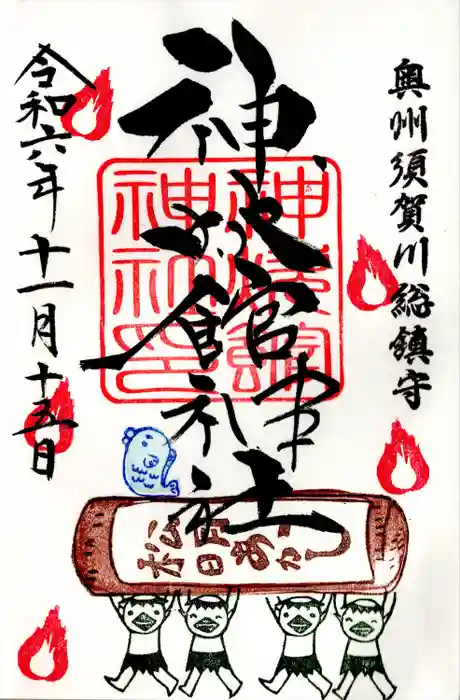 奥州須賀川総鎮守
神炊館神社
令和六年十一月十五日
神炊館
神社印
松明あかし